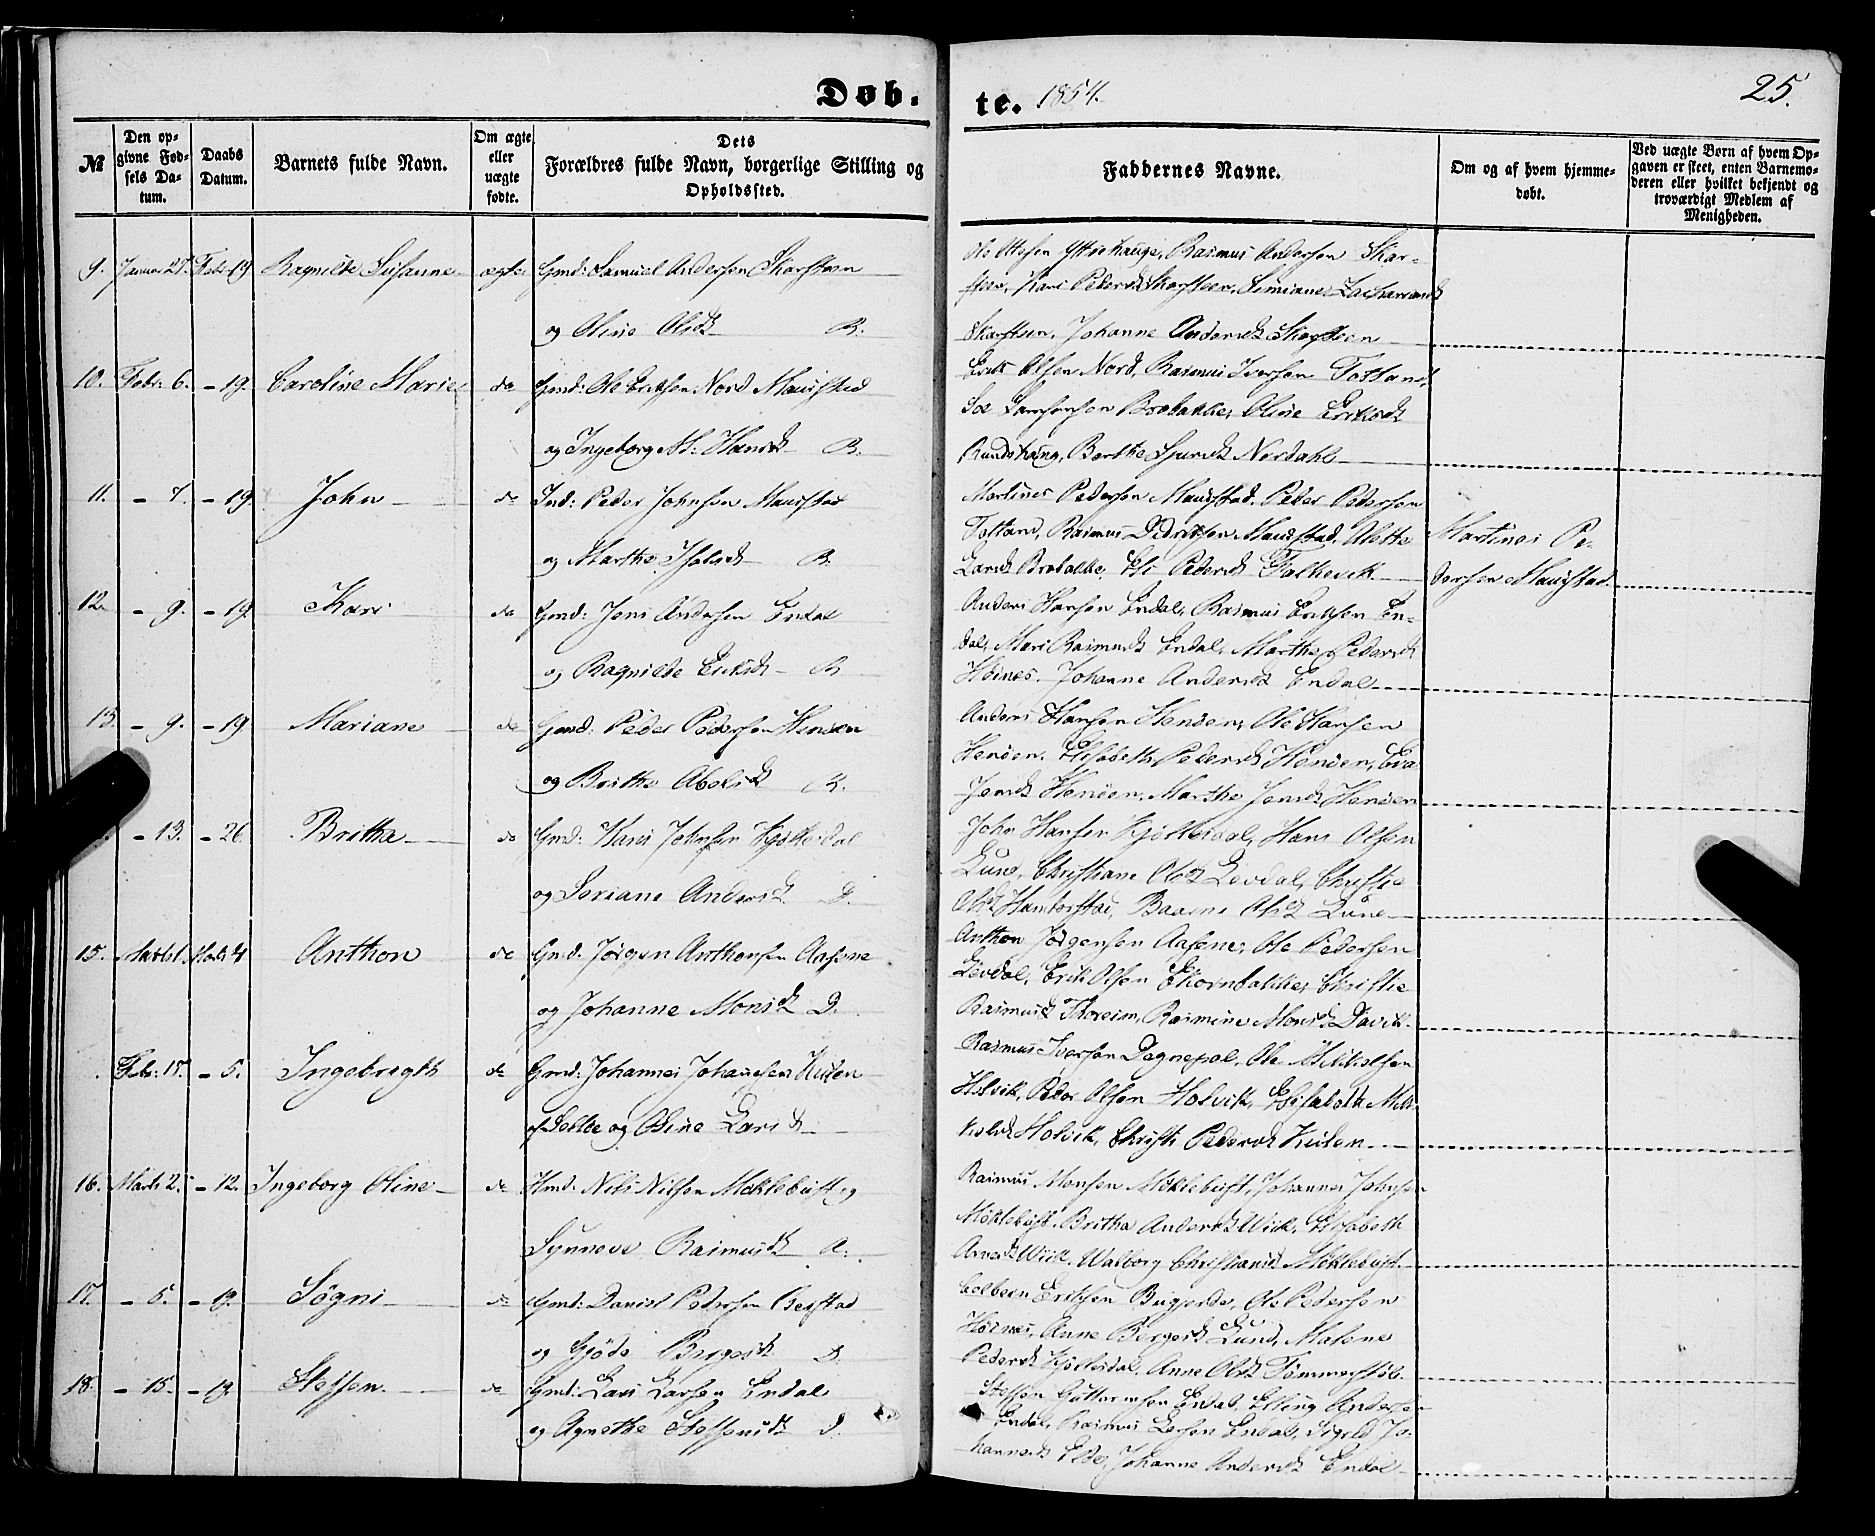 Døb.
te. 1854.
25.
№
Den opgivne Fødsels Datum.
Daabs Datum.
Barnets fulde Navn.
Om ægte eller uægte fødte.
Dets Forældres fulde Navn, borgerlige Stilling og Opholdssted.
Faddernes Navne.
Om og af hvem hjemmedøbt.
Ved uægte Børn af hvem Opgaven er skeet, enten Barnemoderen eller hvilket bekjendt og troværdigt Medlem af Menigheden.
9. Januar 27. Febr: 19 Ragnilde Susanne ægte Gmd: Samuel Andersen Skarsteen
og Oline Olsd B.
Rasmus Andersen Skar-
steen, Kari Pedersd Skarsteen,
Skarsteen, Johanne Andersd Skarsteen
10. Febr: 6. - 19. Caroline Marie do Gmd: Ole Eriksen Nord Maurstad
og Ingeborg M: Hansd B.
Erik Olsen Nord, Rasmus Iversen Totland,
Brobakke, Oline Eriksd
Rundehaug, Berthe Sjursd Nordahl
11. - 7. - 19. John do Ind: Peder Johnsen Maurstad
og Marthe B.
Martines Pedersen Maurstad, Peder Pedersen
Totland, Rasmus Didriksen Maurstad, Alethe
Larsd Brobakke, Pedersd Falkevik
Martines Pe-
dersen Maurstad
12. - 9. - 19. Kari do Gmd: Jens Andersen Endal
og Ragnilde Eriksd B.
Anders Hansen Endal, Rasmus Eriksen En-
dal, Mari Rasmusd Endal, Marthe Pedersd
Hoines, Johanne Andersd Endal
13 - 9. - 19 Mariane do Gmd: Peder Pedersen Henden
og Brithe Abelsd B.
Anders Hansen Henden, Ole Hansen
Henden, Elisabeth Pedersd Henden, Eva
Jensd Henden, Marthe Jensd Henden
- 13. - 26. Britha do Gmd: Hans Johnsen Kjøllesdal
og Seriane Andersd D.
John Hansen Kjøllesdal, Hans Olsen
Lund, Christiane Olsd Levdal, Christie
Olsd Hamborstad, Olsd Lund
15. Marts 1. Marts 4 Anthon do Gmd: Jørgen Anthonsen Aasene
og Johanne Monsd D.
Anthon Jørgensen Aasene, Ole Pedersen
Levdal, Erik Olsen Ekornbakke, Christie
Rasmusd Thoreim, Rasmine Monsd Davik
Febr: 15. - 5. Ingebrigth do Gmd: Johannes Johannesen
og Oline Larsd
Rasmus Iversen Degnepol, Ole Mikkelsen
Holvik, Peder Olsen Holvik, Elisabeth Mik-
kelsd Holvik, Christi Pedersd
16. Marts 2. - 12. Ingeborg Oline do Hmd: Nils Nilsen Møklebust og
Synneve Rasmusd A.
Rasmus Monsen Møklebust, Johannes Johnsen
Møklebust, Britha Andersd Wiik, Elisabeth
Arnesd Wiik, Walborg Christiansd Møklebust
17. - 5. - 19. Søgni do Gmd: Daniel Pedersen
og Gjøde D.
Colbeen Eriksen Ole Pedersen
Hoines, Anne Lund, Malene
Pedersd Kjøllesdal, Anne Olsd
18. - 15. - 19. Steffen do Gmd: Lars Larsen Endal
og Agnethe Steffensd D.
Steffen Guttormsen Endal, Elling Andersen
Endal, Rasmus Larsen Endal, Sigrid Jo-
hannesd Johanne Andersd Endal